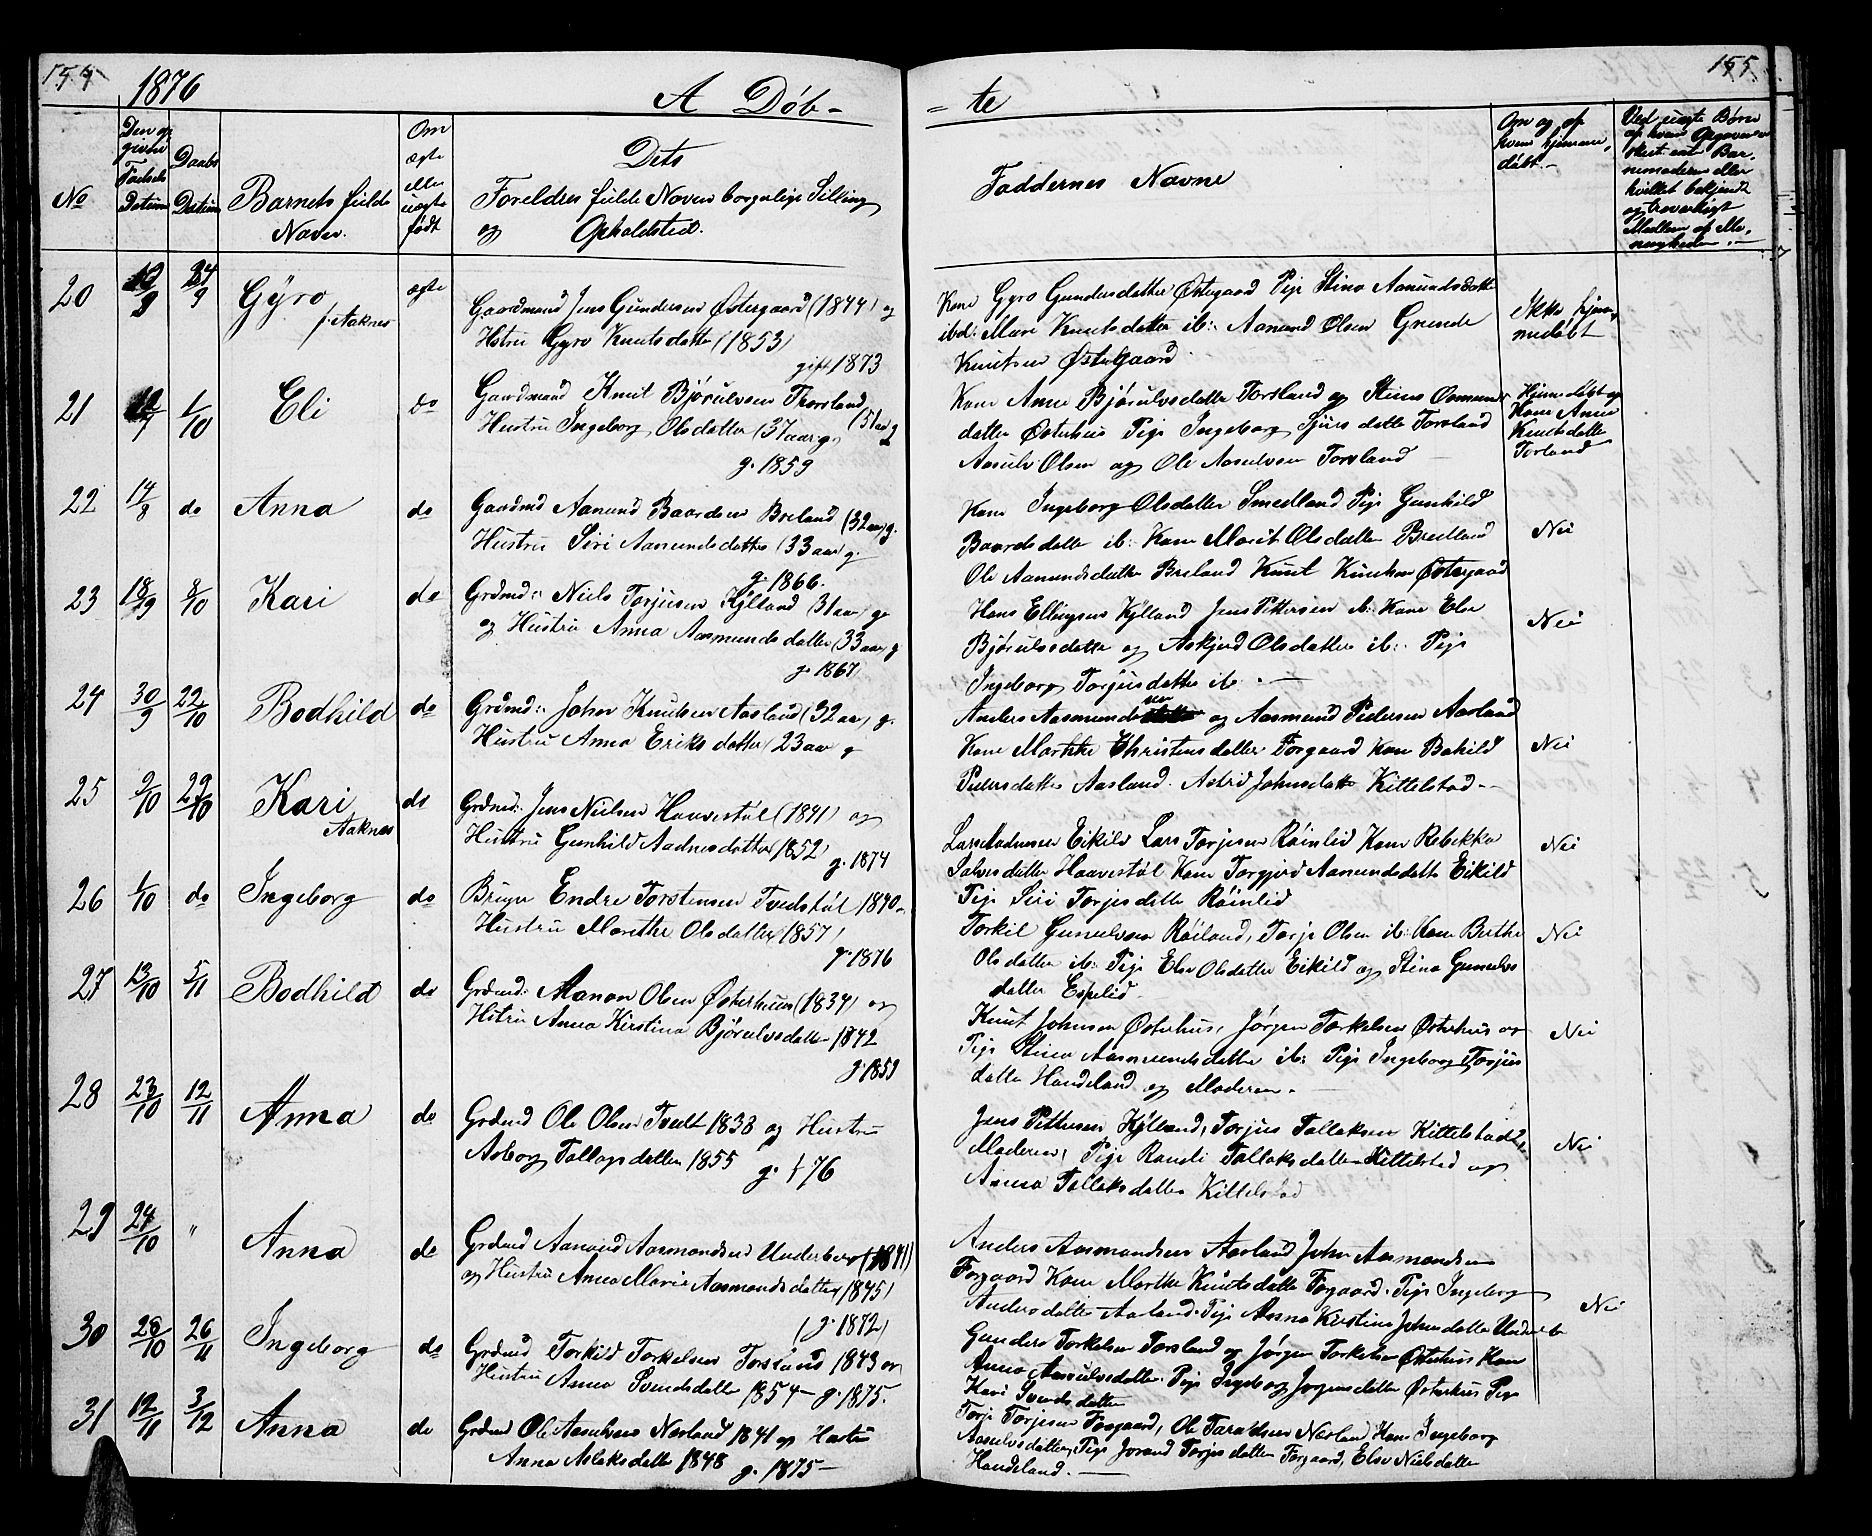 154
1876
A Døb-
No
Den op
given
Fødsels
Datum
Daabs
Datum
Barnets fulde
Navn.
Om
ægte
eller
uægte
født
Dets
Foreldres fulde Navne borgerlige Stilling
og Opholdsted.
20 9 24/9 Gyro ægte
f. Aaknes
Gaardmand Jens Gundersen Østergaard (1844) og
Hstru Gyro Knutsdatter (1853)
gift 1873
21 1/10 Eli do
Gaardmand Knut Bjørulvsen Thorsland
Hustru Ingeborg Olsdatter (37 aar g.
g. 1859
22 14/8 do Anna do
Gaardmd Aanund Baardsen Breland (32 aar g.
Hustru Siri Aanundsdatter (33 aar) g.
g. 1866.
23 18/9 8/10 Kari do
Grdmd: Niels Torjusen Kylland (31 aar) g
og Hustru Anna Aasmundsdatter (33 aar g
g. 1867)
24 30/9 22/10 Bodhild do
Grdmd: John Knutsen Aasland (32 aar) g.
Hustru Anna Eriksdatter (23 aar g
25 9/10 29/10 Kari do
Aaknes
Grdmd: Jens Nielsen Haavestøl (1841) og
Hustru Gunhild Aadnesdatter 1852)
g. 1874
26 1/10 do Ingeborg do
Bruger Endre Torstensen Tvedstøl 1840
Hustru Marethe Olsdatter (1857)
g. 1876
27 13/10 5/11 Bodhild do
Grdmd: Aanon Olsen Østerhuus (1834) og
Hstru Anna Kirstina Bjørulvsdatter 1842
g. 1859
28 23/10 12/11 Anna do
Grdmd Ole Olsen Tvedt 1838 og Hustru
Asborg Tallagsdatter 1855 g. 76
29 24/10 " Anna do
Grdmd Aanund Aasmundsen Underberg (1841)
og Hustru Anna Marie Aasmundsdatter 1845)
(g. 1872)
30 28/10 26/11 Ingeborg do
Grdmd Torkild Torkelsen Torsland 1843 og
Hustru Anna Svendsdatter 1854 - g. 1875.
31 12/11 3/12 Anna do
Grdmd Ole Aasulvsen Nasland 1841 og Hustru
Anna Aslaksdatter 1848 g. 1875 -
155.
- te
Faddernes Navne
Om og af
hvem hjemme
døbt. -
Ved uægte Børn
nemoderen eller
og troværdigt
Medlem af Me-
nigheden. -
Kone Gyro Gundersdatter Østergaard Pige Stina Aanundsdatter
ibd: Mari Knutsdatter ib: Aanund Olsen Gunde
Knutsen Østergaard.
Ikke hjem
medøbt
Kone Anne Bjørulvsdatter Torsland og Stina Osmunds
datter Østerhus Pige Ingeborg Sjursdatter Torsland
Aasulv Olsen og Ole Aasulvsen Torsland
Hjemmedøbt af
Kone Anne
Knutsdatter
Torland
Kone Ingeborg Olsdatter Smedland Pige Gunhild
Baardsdatter ib: Kone Marit Olsdatter Bredland
Ole Aanundsdatter Breland Knut Knutsen Østergaard
Nei
Hans Ellingsen Kylland Jens Pettersen ib: Kone Else
Bjørulvsdatter og Askjerd Olsdatter ib: Pige
Ingeborg Torjusdatter ib. -
Nei
Anders Aasmundsen og Aasmund Pedersen Aasland
Kone Marthe Christensdatter Forgaard Kone Bohild
Pedersdatter Aasland. Astrid Johnsdatter Kittelstad.-
Nei
Lars Eikild Lars Torjesen Røinlid Kone Rebekka
Salvesdatter Haavestøl Kone Torgjerd Aanundsdatter Eikild
Pige Siri Torjesdatter Røinlid
Nei
Torkil Gunulvsen Røiland, Torje Olsen ib: Kone Berthe
Olsdatter ib: Pige Else Olsdatter Eikild og Stina Gunulvs
datter Espelid.
Nei
Knut Johnsen Østerhus, Jørgen Torkelsen Østerhus og
Pige Stina Aasmundsdatter ib: Pige Ingeborg Torjus
datter Handeland og Moderen.
Nei
Jens Pettersen Kylland, Torjus Tallaksen Kittelstad
Moderen, Pige Randi Tallaksdatter Kittelstad og
Anna Tallaksdatter Kittelstad
Nei
Anders Aasmundsen Aasland John Aasmundsen
Forgaard Kone Marthe Knutsdatter Forgaard. Pige Ingeborg
Andersdatter Aasland. Pige Anna Kirstine Johnsdatter Underb
Nei
Gunder Torkelsen Torsland og Jørgen Torkelsen Østerhus Kone
Anna Aasulvsdatter. Pige Ingeborg Jørgensdatter Østerhus Pige
Kari Svendsdatter
Torje Torjesen Forgaard, Ole Taraldsen Nasland Kone Ingeborg
Aasulvsdatter, Pige Jorand Torjesdatter Forgaard, Else Nielsdatter
Handeland. -